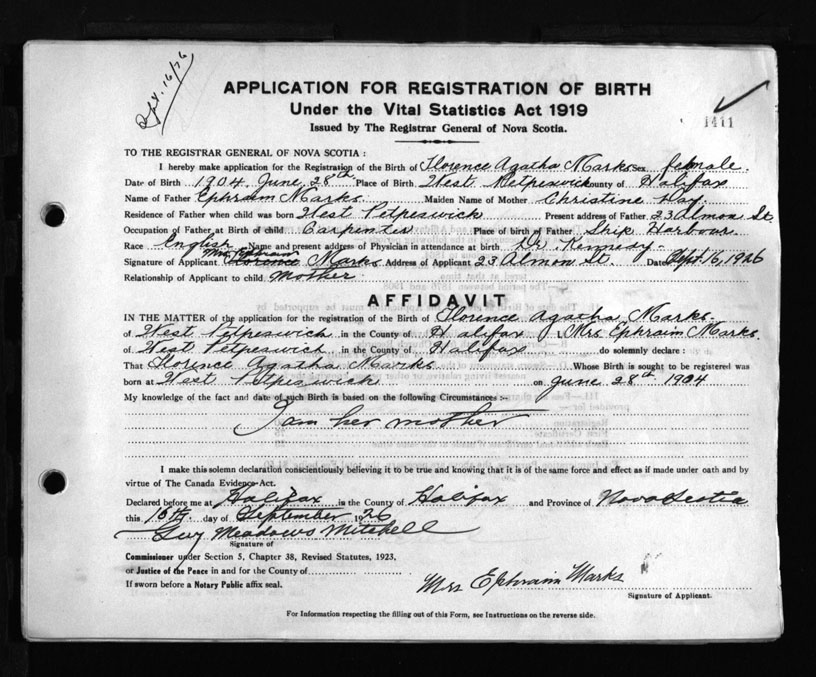 Sept. 16/26
APPLICATION FOR REGISTRATION OF BIRTH
Under the Vital Statistics Act 1919
1411
Issued by The Registrar General of Nova Scotia.
TO THE REGISTRAR GENERAL OF NOVA SCOTIA :
I hereby make application for the Registration of the Birth of Florence Agatha Marks Sex female
Date of Birth 1904 June 28th Place of Birth West Petpeswick County of Halifax
Name of Father Ephraim Marks Maiden Name of Mother Christine Hay
Residence of Father when child was born West Petpeswick Present address of Father 23 Almon St.
Occupation of Father at Birth of child Carpenter Place of Birth of Father Ship Harbour
Race English Name and present address of Physician in attendance at birth Dr Kennedy
Mrs Ephraim
Signature of Applicant Florence Marks Address of Applicant 23 Almon St. Date Sept 16, 1926
Relationship of Applicant to child Mother
AFFIDAVIT
IN THE MATTER of the application for the registration of the Birth of Florence Agatha Marks
of West Petpeswich in the County of Halifax I, Mrs Ephraim Marks
of West Petpeswich in the County of Halifax do solemnly declare :
That Florence Agatha Marks Whose Birth is sought to be registered was
born at West Petpeswich on June 28th 1904
My knowledge of the fact and date of such Birth is based on the following Circumstances :-
I am her mother
I make this solemn declaration conscientiously believing it to be true and knowing that it is of the same force and effect as if made under oath and by
virtue of The Canada Evidence Act.
Declared before me at Halifax is the County of Halifax and Province of Nova Scotia
this 16th day of September 1926
Guy Meadows Mitchell
Signature of
Commissioner under Section 5, Chapter 38, Revised Statutes, 1923,
or Justice of the Peace in and for the County of
If sworn before a Notary Public affix seal.
Mrs Ephraim Marks
Signature of Applicant.
For Information respecting the filling out of this Form, see Instructions on the reverse side.